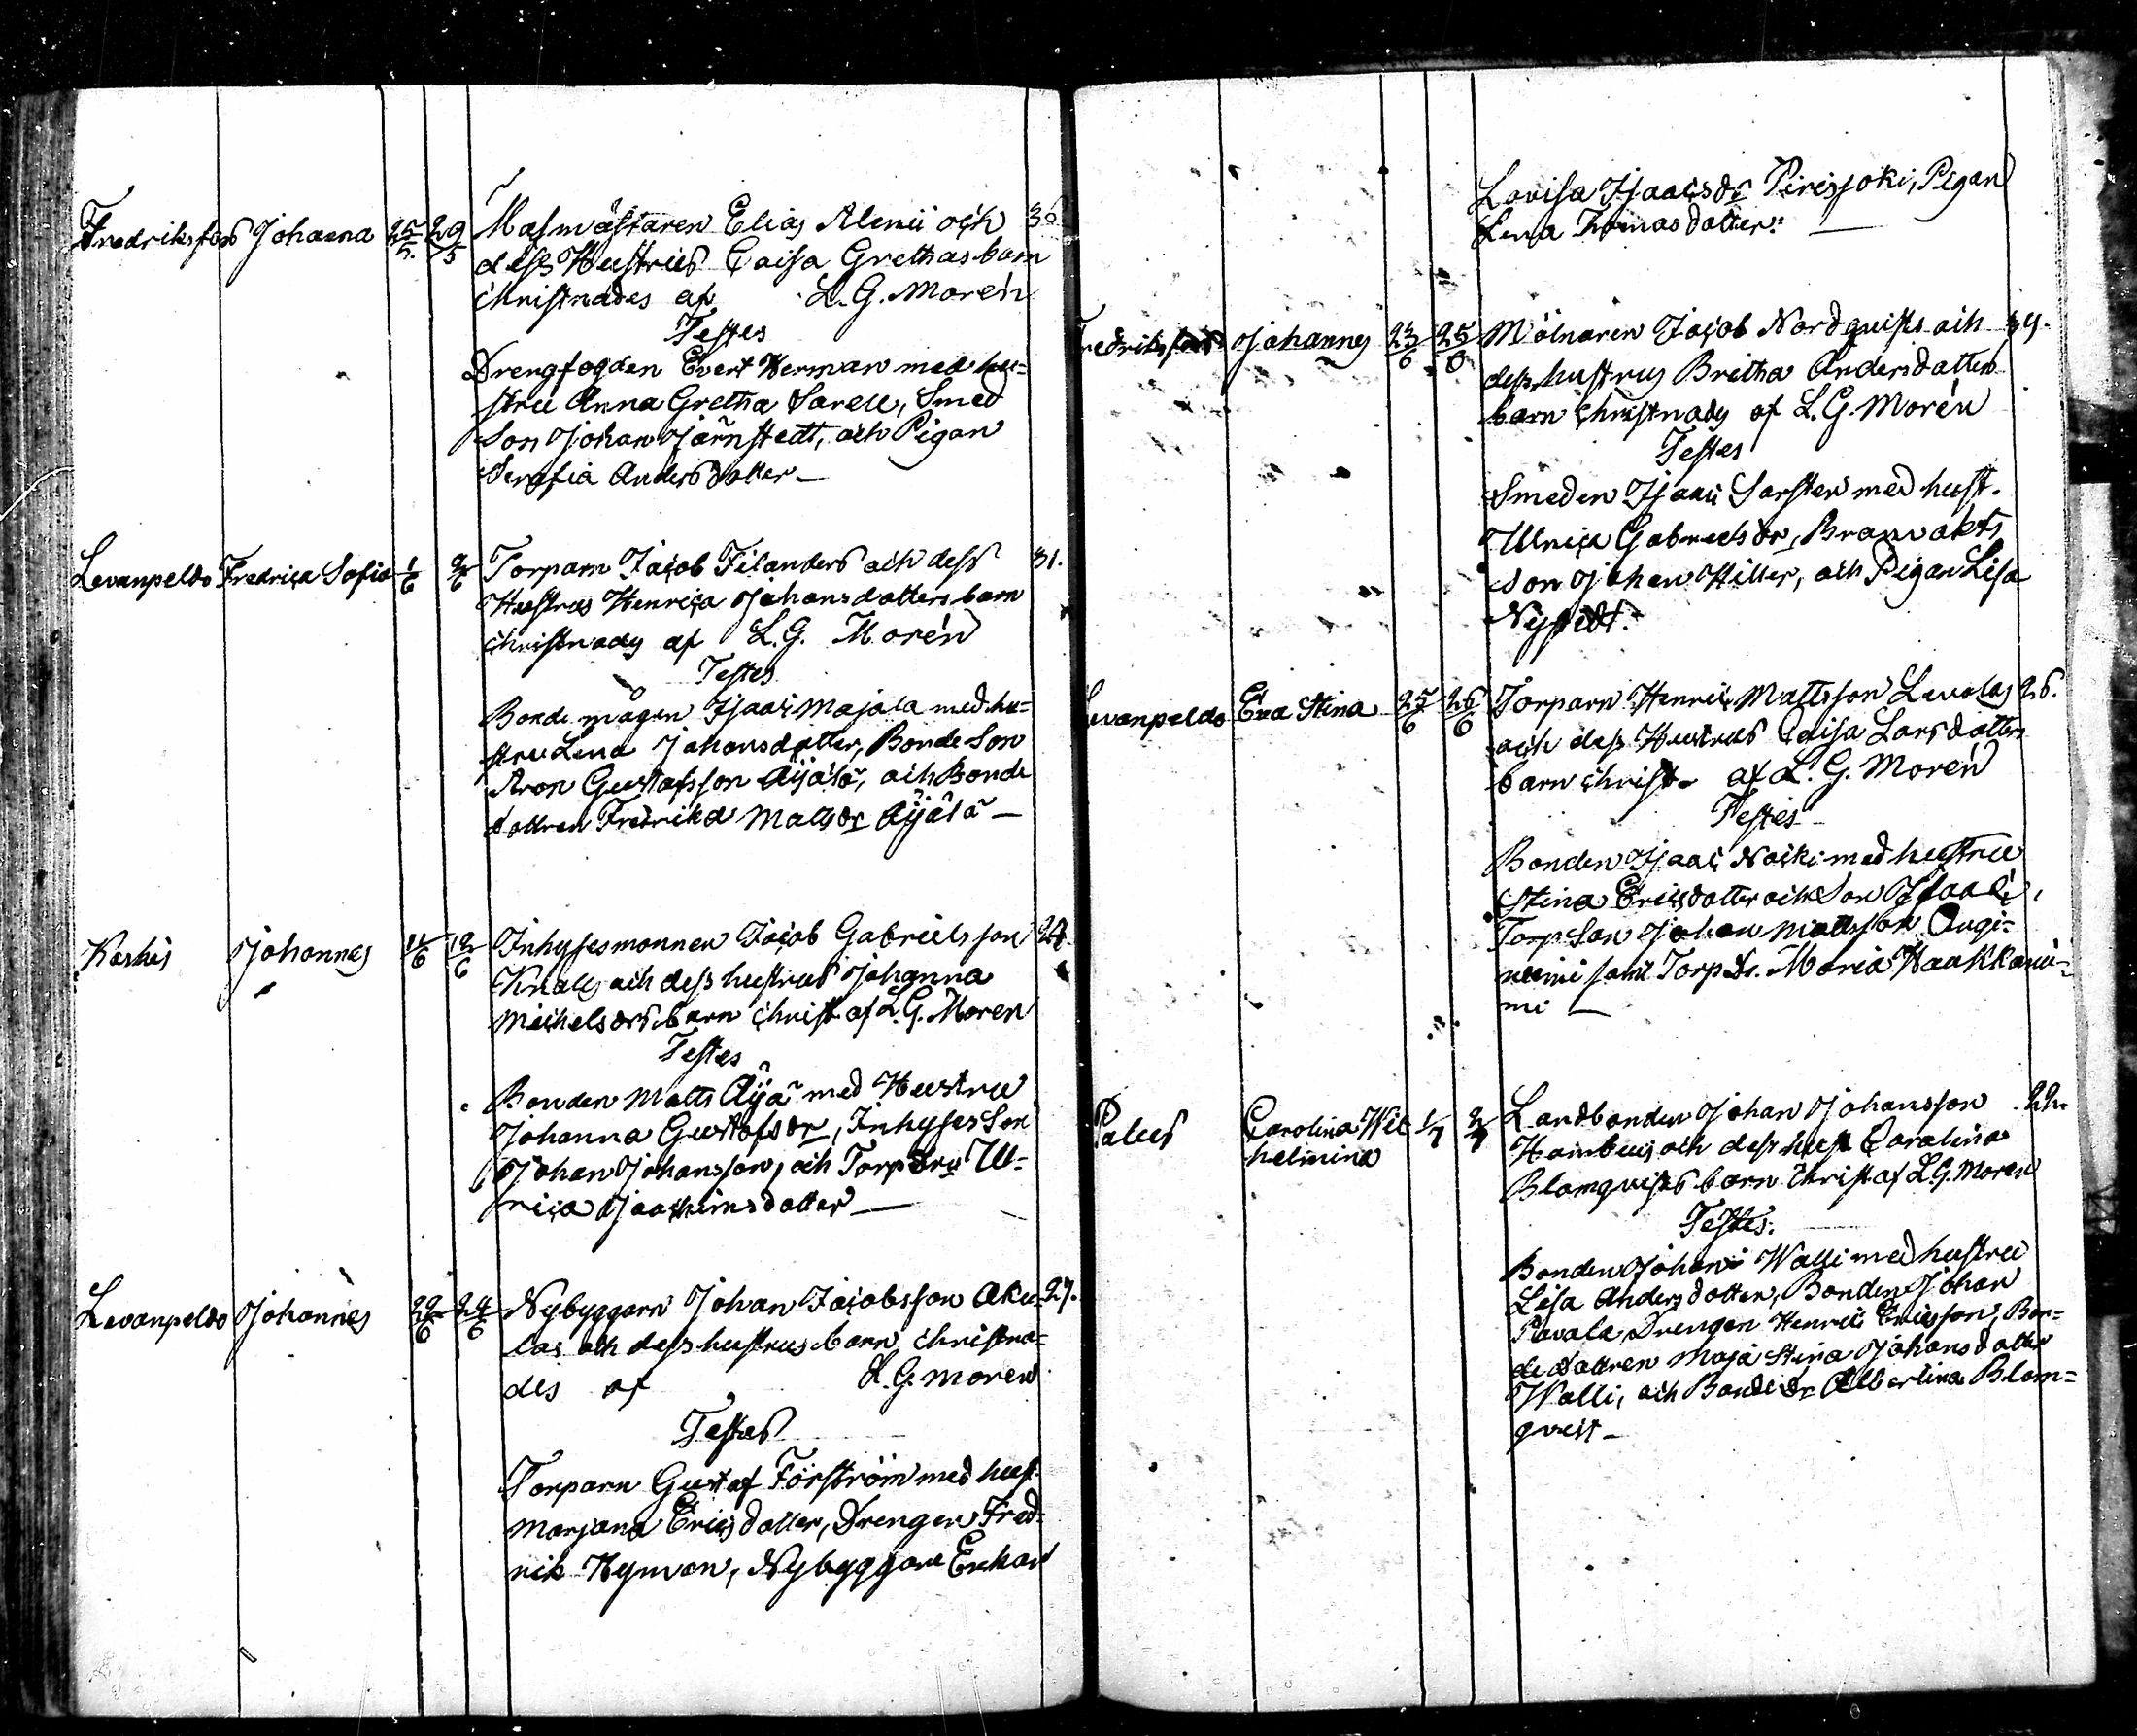 Fredriksfors Johanna 25/5 29/5 Masmästaren Elias Alenii och 36.
dess Hustrus Caisa Grethas barn
christnades af L. G. Morén
Testes
Drengfogden Evert Herman med hu=
stru Anna Gretha Sarell, Smed
Son Johan Järnstedt, och Pigan
Serafia Andersdotter —
Levanpeldo Fredrica Sofia 1/6 2/6 Torparn Jacob Filanders och dess 31.
Hustrus Henrica Johansdotters barn
christnades af L. G. Morén
Testes
Bonde mågen Isaac Majala med hu=
stru Lena Johansdotter, Bonde Son
Aron Gustafsson Äijälä, och Bonde
dottren Fredrika Matts dr Äijälä —
Koskis Johannes 11/6 12/6 Inhysesmannen Jacob Gabrielsson 24.
och dess hustrus Johanna
Michelsdrs barn christ. af L. G. Moren
Testes
Bonden Matts Äijä med Hustru
Johanna Gustafsdr, Inhyses Son
Johan Johansson, och Torp Ul=
rica Joachimsdotter —
Levanpeldo Johannes 22/6 24/6 Nybyggarn Johan Jacobsson Aku= 27.
las och dess hustrus barn christna=
des af L. G. Moren
Testes
Torparn Gustaf Förström med hust.
Marjana Ericsdotter, Drengen Fred=
rik Hyman, Nybyggare Enkan
Lovisa Isaacsdr Pirisjoki, Pigan
Lena Thomasdotter. —
Fredriksfors Johannes 23/6 25/6 Mölnaren Jacob Nordquists och 39.
dess hustrus Britha Andersdotters
barn christnades af L. G. Morén
Testes
Smeden Isaac Sarsten med hust.
Ulrica Gabrielsdr, Branvakts
Son Johan Hiller, och Pigan Lisa
Nystedt.
Levanpeldo Eva Stina 25/6 26/6 Torparn Henric Mattsson Levolas 26.
och dess Hustrus Caisa Larsdotters
barn christ. af L. G. Morén
Testes
Bonden Isaac Nocki med hustru
Stina Ericsdotter och Son Isaac,
Torp Son Johan Mattsson Augi=
niemi samt Torp Dr. Maria Haakkanii=
mi —
Palus Carolina Wil 1/7 2/7 Landbonden Johan Johansson 22.
helmina Hambus och dess hust Carolina
Blomquists barn christ af L. G. Moren
Testes.
Bonden Johan Walli med hustru
Lisa Andersdotter, Bonden Johan
Pavala Drengen Henric Ericsson, Bon=
de dottren Maja Stina Johansdotter
Walli, och Bonde dr Albertina Blom=
qvist —